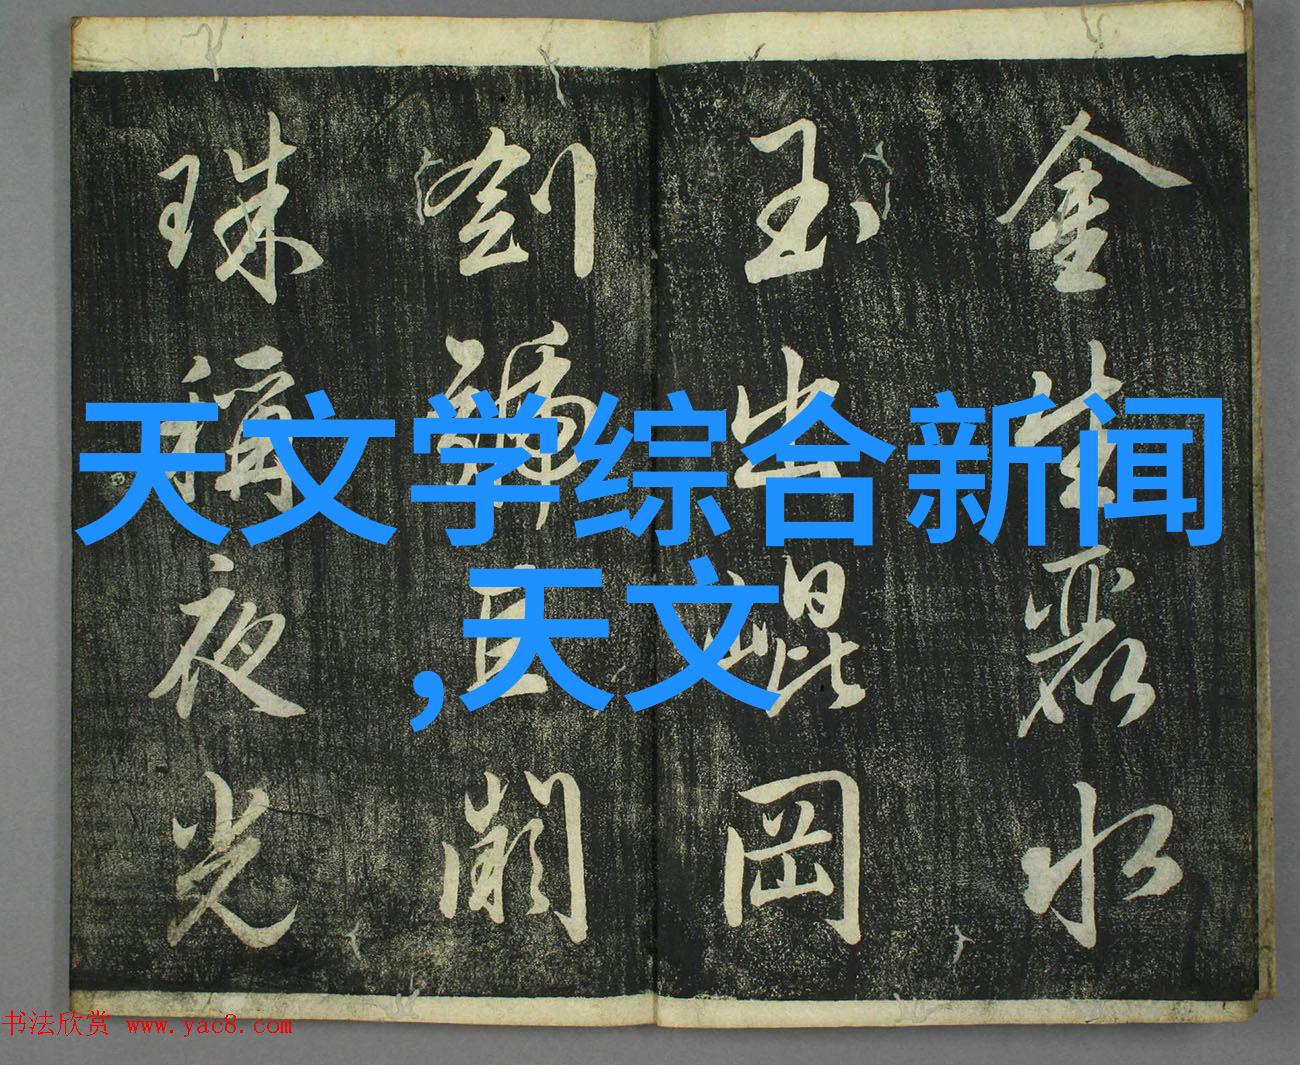 金生麗水
玉出崐岡
劍號巨闕
珠稱夜光
天文学综合新闻
,天文
书法欣赏 www.yac8.com